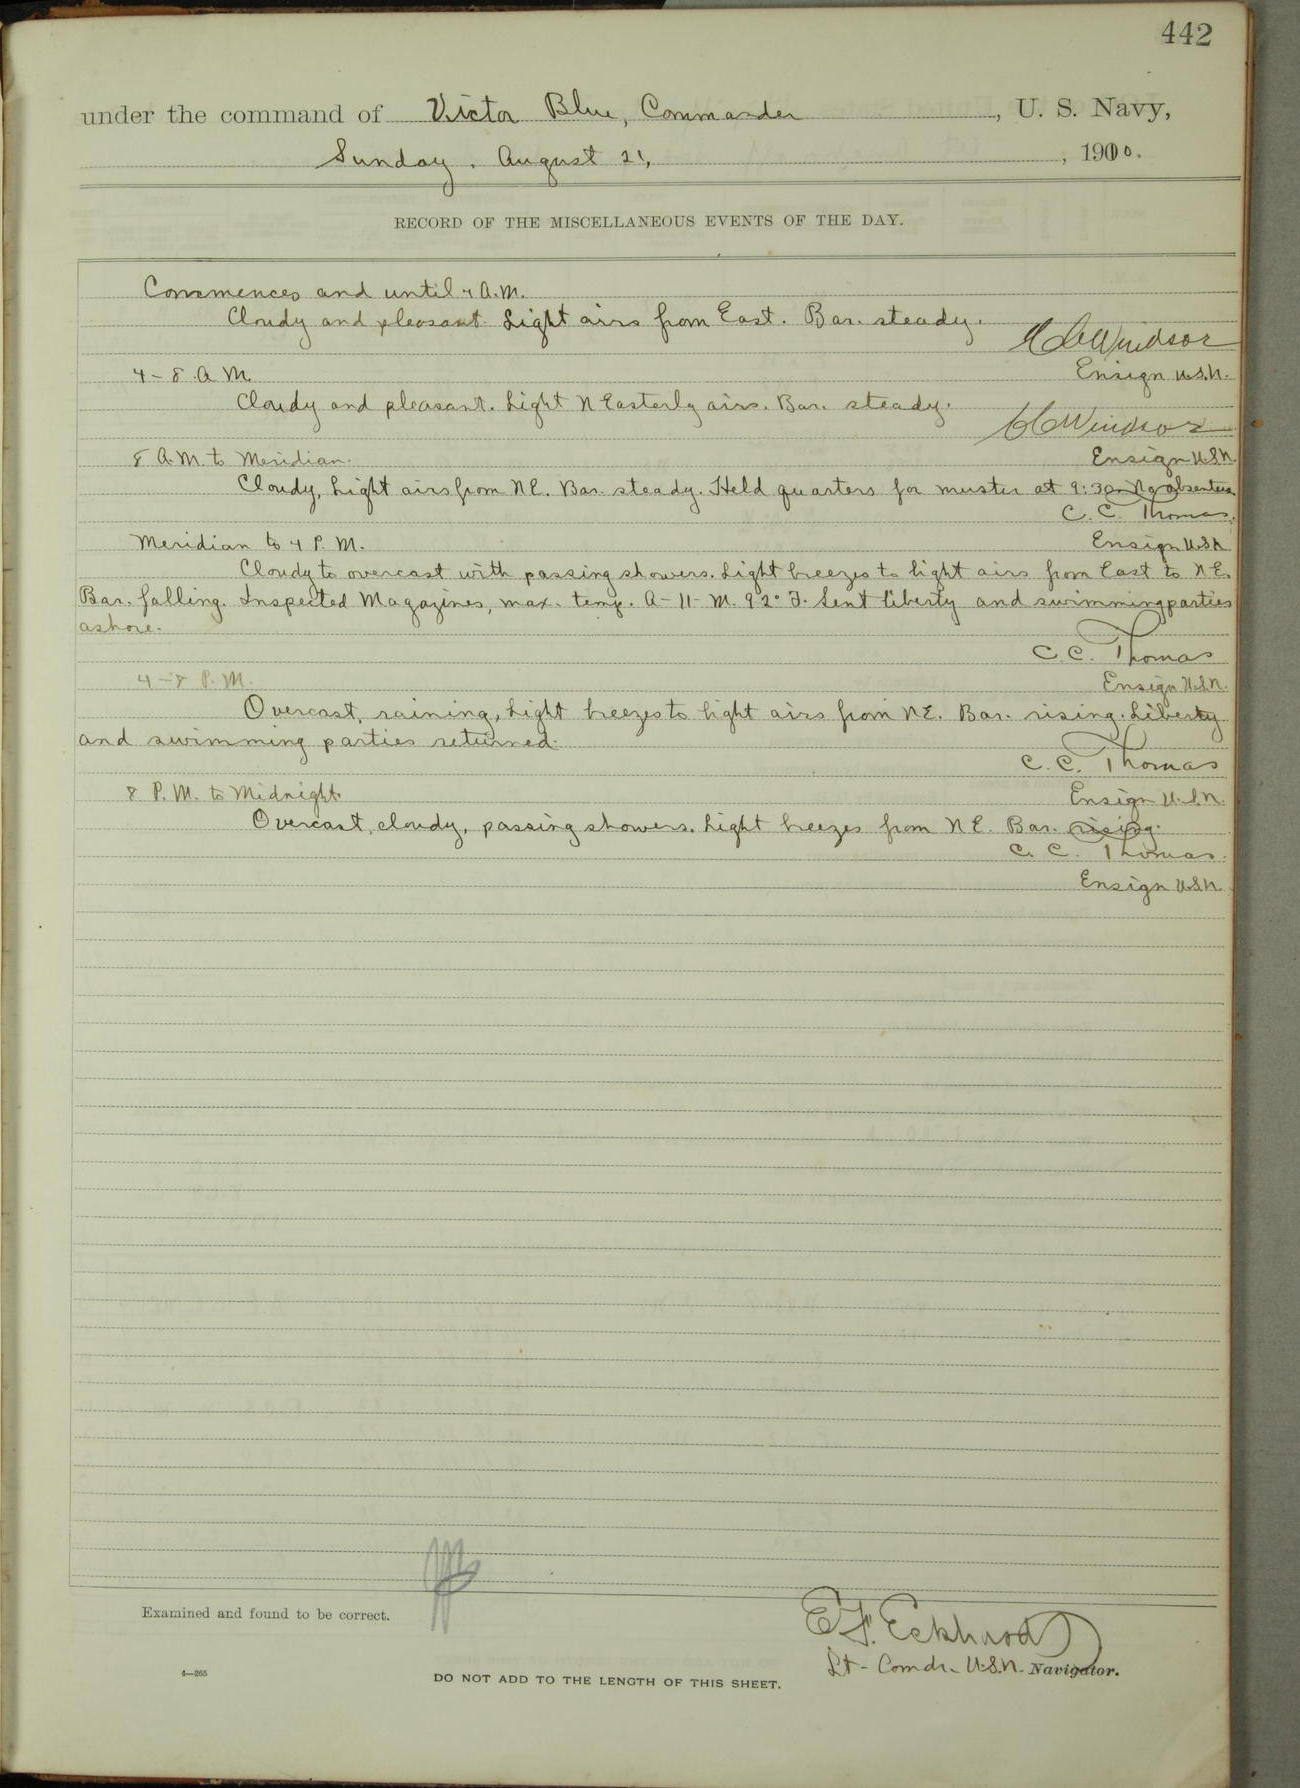 442
under the command of Victor Blue, Commander, U. S. Navy,
Sunday, August 21, 1910.
RECORD OF THE MISCELLANEOUS EVENTS OF THE DAY.
Commences and until 4 A.M.
Cloudy and pleasant. Light airs from East. Bar. steady.
Windsor
4-8 A M. Ensign U.S.N.
Cloudy and pleasant. Light N Easterly airs. Bar. steady.
Windsor
8 A.M. to Meridian. Ensign U.S.N.
Cloudy, Light airs from N E. Bar. steady. Held quarters for muster at 9:30 No absentees
C. C. Thomas.
Meridian to 4 P. M. Ensign U.S.N
Cloudy to overcast with passing showers. Light breezes to light airs from East to N E.
Bar. falling. Inspected Magazines, max. temp. A-11-M. 92° F. Sent liberty and swimming parties
ashore.
C. C. Thomas
4-8 P. M. Ensign U.S.N.
Overcast, raining, Light breezes to light airs from N E. Bar. rising. Liberty
and swimming parties returned.
C. C. Thomas
8 P. M. to Midnight. Ensign U.S.N.
Overcast, cloudy, passing showers. Light breezes from N E. Bar. rising.
C. C. Thomas.
Ensign U.S.N.
Examined and found to be correct.
E. F. Eckhardt
Lt-Comdr. U.S.N. Navigator.
4—265
DO NOT ADD TO THE LENGTH OF THIS SHEET.